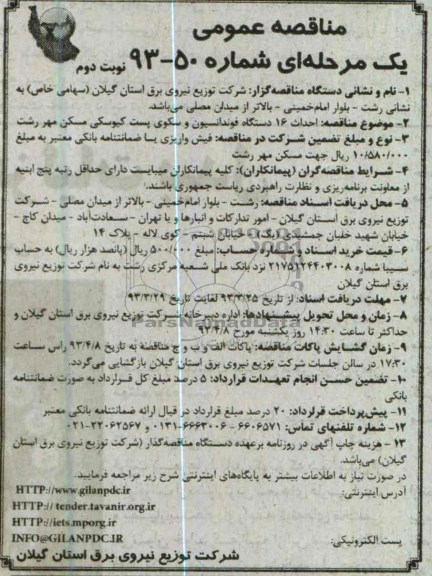 مناقصه عمومی
یک مرحله‌ای شماره ۵۰-۹۳ نوبت دوم
۱- نام و نشانی دستگاه مناقصه‌گزار: شرکت توزیع نیروی برق استان گیلان (سهامی خاص) به
نشانی رشت - بلوار امام‌خمینی - بالاتر از میدان مصلی می‌باشد.
۲- موضوع مناقصه: احداث ۱۶ دستگاه فونداسیون و سکوی پست کیوسکی مسکن مهر رشت
۳- نوع و مبلغ تضمین شرکت در مناقصه: فیش واریزی یا ضمانتنامه بانکی معتبر به مبلغ
۱۰/۵۸۰/۰۰۰ ریال جهت مسکن مهر رشت
۴- شرایط مناقصه‌گران (پیمانکاران): کلیه پیمانکاران میبایست دارای حداقل رتبه پنج ابنیه
از معاونت برنامه‌ریزی و نظارت راهبردی ریاست جمهوری باشند.
۵- محل دریافت اسناد مناقصه: رشت - بلوار امام‌خمینی - بالاتر از میدان مصلی - شرکت
توزیع نیروی برق استان گیلان - امور تدارکات و انبارها و یا تهران - سعادت‌آباد - میدان کاج -
خیابان شهید خلبان جمشیدی (یک) - خیابان شبنم - کوی لاله - پلاک ۱۴
۶- قیمت خرید اسناد و شماره حساب: مبلغ ۵۰۰/۰۰۰ ریال (پانصد هزار ریال) به حساب
سیبا شماره ۲۱۷۵۱۲۴۴۰۳۰۰۸ نزد بانک ملی شعبه مرکزی رشت به نام شرکت توزیع نیروی
برق استان گیلان
۷- مهلت دریافت اسناد: از تاریخ ۹۳/۳/۲۵ لغایت تاریخ ۹۳/۳/۲۹
۸- زمان و محل تحویل پیشنهادها: اداره دبیرخانه شرکت توزیع نیروی برق استان گیلان و
حداکثر تا ساعت ۱۴:۳۰ روز یکشنبه مورخ ۹۳/۴/۸
۹- زمان گشایش پاکات مناقصه: پاکات الف و ب و ج مناقصه به تاریخ ۹۳/۴/۸ راس ساعت
۱۷:۳۰ در سالن جلسات شرکت توزیع نیروی برق استان گیلان بازگشایی می‌گردد.
۱۰- تضمین حسن انجام تعهدات قرارداد: ۵ درصد مبلغ کل قرارداد به صورت ضمانتنامه
بانکی
۱۱- پیش‌پرداخت قرارداد: ۲۰ درصد مبلغ قرارداد در قبال ارائه ضمانتنامه بانکی معتبر
۱۲- شماره تلفنهای تماس: ۶۶۰۶۵۷۱ - ۶۶۶۳۰۰۶-۰۱۳۱ و ۲۲۰۶۲۵۶۷-۰۲۱
۱۳ - هزینه چاپ آگهی در روزنامه برعهده دستگاه مناقصه‌گذار (شرکت توزیع نیروی برق استان
گیلان) می‌باشد.
در صورت نیاز به اطلاعات بیشتر به پایگاه‌های اینترنتی شرح زیر مراجعه فرمایید.
آدرس اینترنتی: HTTP://www.gilanpdc.ir
HTTP:// tender.tavanir.org.ir
HTTP://iets.mporg.ir
پست الکترونیکی: INFO@GILANPDC.IR
شرکت توزیع نیروی برق استان گیلان